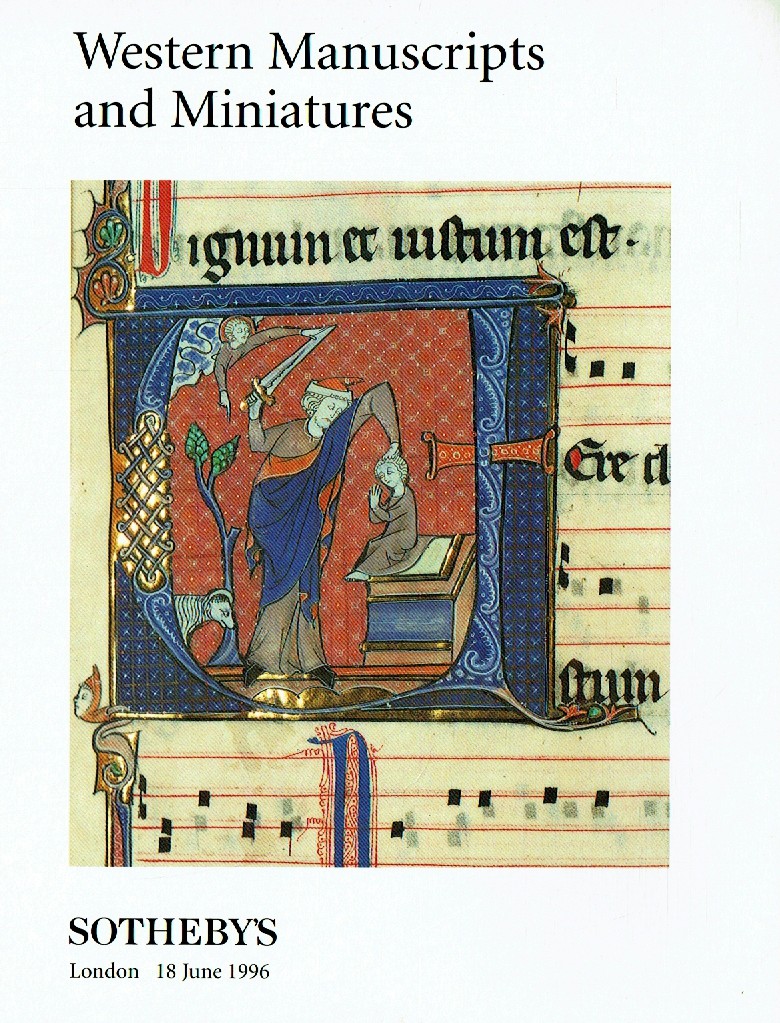 Western Manuscripts
and Miniatures
ignum et iustum est.
Ere d
stum
SOTHEBY'S
London 18 June 1996